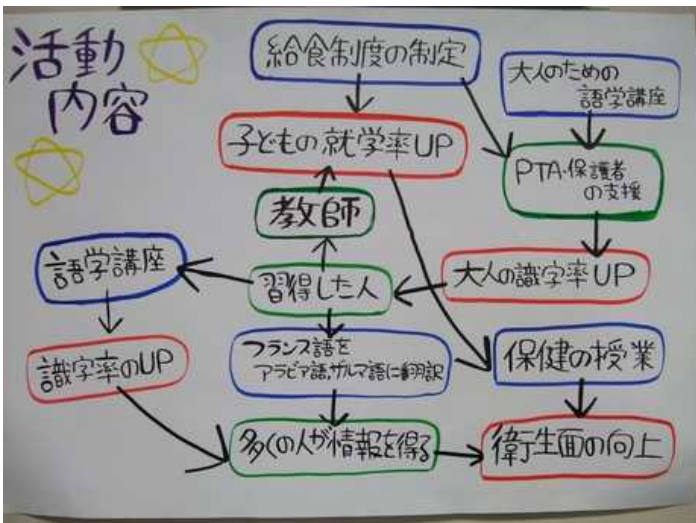 活動
内容
給食制度の制定
大人のための
語学講座
子どもの就学率UP
PTA・保護者
の支援
教師
語学講座
習得した人
大人の識字率UP
フランス語を
アラビア語,ザルマ語に翻訳
保健の授業
識字率のUP
多くの人が情報を得る
衛生面の向上